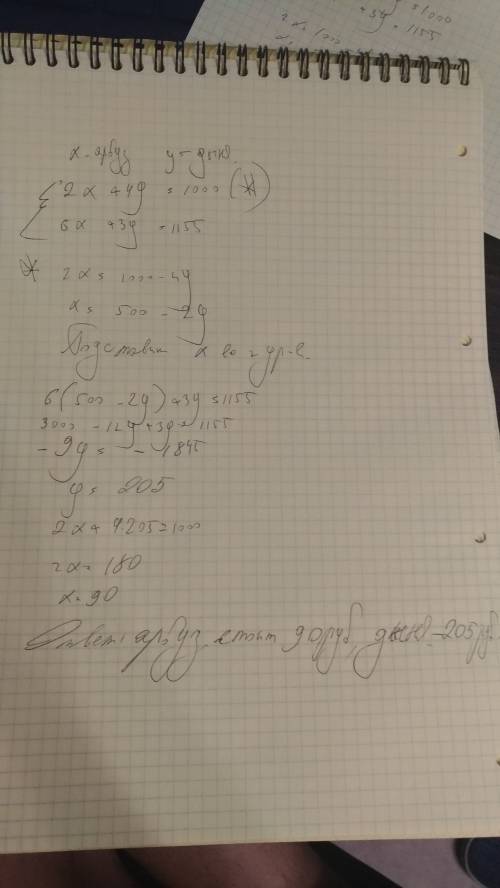 = 1000
+ 3y = 1155
2x = 1000
x - арбуз y = дыня.
2x + 4y = 1000 (*)
6x + 3y = 1155
* 2x = 1000 - 4y
x = 500 - 2y
Подставим x во 2 ур-е.
6(500 - 2y) + 3y = 1155
3000 - 12y + 3y = 1155
-9y = -1845
y = 205
2x + 4·205 = 1000
2x = 180
x = 90
Ответ: арбуз стоит 90 руб, дыня - 205 руб.